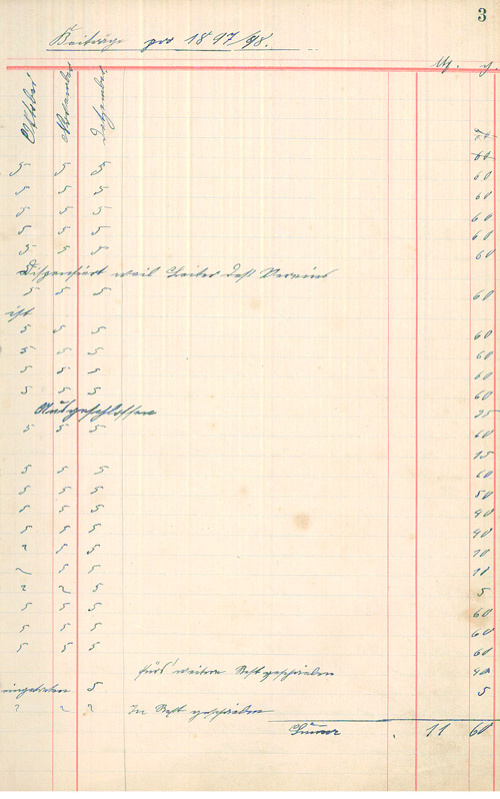 3
Beiträge pro 1897/98.
M. ₰.
Oktober November Dezember
60
5 5 5 60
5 5 5 60
5 5 5 60
5 5 5 60
5 5 5 60
Dispensiert weil Leiter des Vereins
5 5 5 60
ist
5 5 5 60
5 5 5 60
5 5 5 60
5 5 5 60
Ausgeschlossen 25
5 5 5 60
15
5 5 5 60
5 5 5 50
5 5 5 40
5 5 5 40
2 5 5 10
2 5 5 10
2 2 5 5
5 5 5 60
5 5 5 60
5 5 5 60
fürs weitere Rest geschrieben 40
eingetreten 5 5
2 2 2 In Rest geschrieben
Summa 11 60